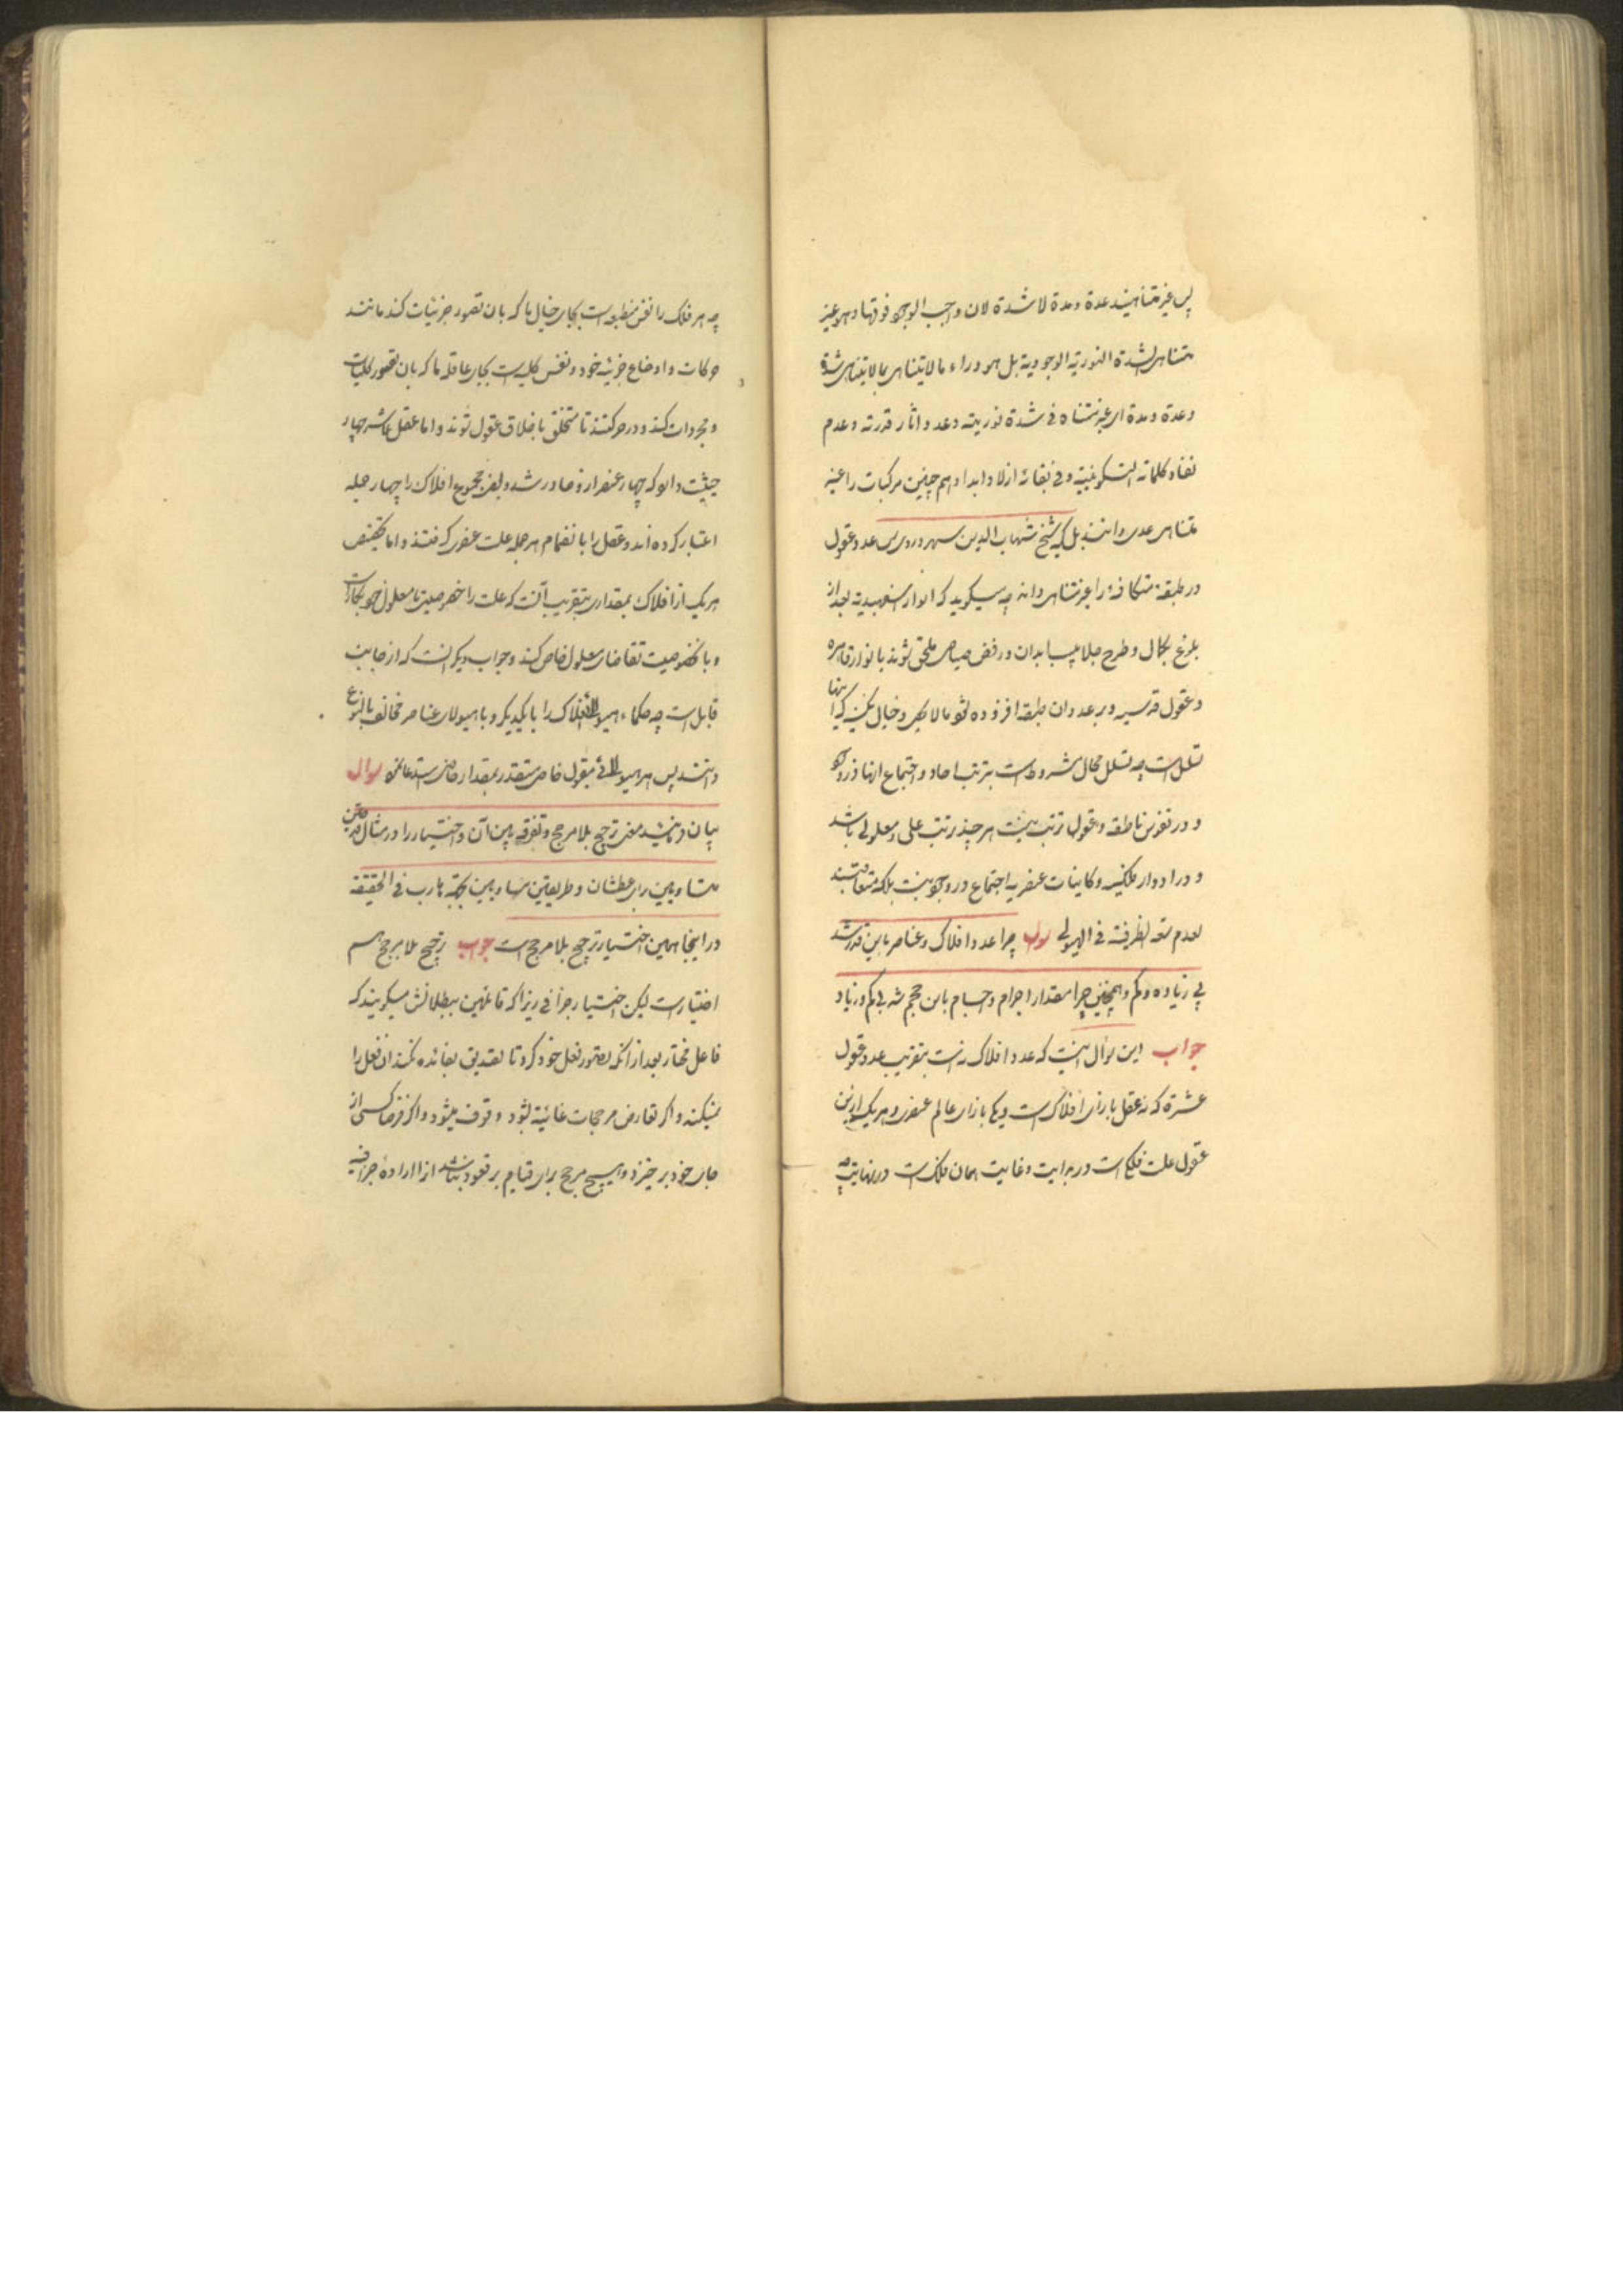 پس غیر متناهیند عدة و مدة لا شدة لان واجب الوجود فوقها و هو غیر
متناهی لشدة النوریة الوجودیة بل هو وراء ما لا یتناهی بما لا یتناهی شدة
و عدة و مدة ای غیر متناه فی شدة نوریته و عدد آثار قدرته و عدم
نفاد کلماته التکوینیة و فی بقائه ازلا و ابدا و هم چنین مرکبات را غیر
متناهی عددی دانند بل که شیخ شهاب الدین سهروردی عدد عقول
در طبقه متکافئه را غیر متناهی داند چه میگوید که انوار اسفهبدیه بعد از
بلوغ بکمال و طرح جلابیب ابدان و رفض صیاصی ملحق شوند بانوار قاهره
و عقول قدسیه و بر عدد ان طبقه افزوده شود الا یقف و خیال نکنی که اینها
تسلسل است چه تسلسل محال مشروط است بترتب احاد و اجتماع انها در وجود
و در نفوس ناطقه و عقول ترتب نیست هر چند ترتب علی و معلولی باشد
و در ادوار فلکیه و کاینات عنصریه اجتماع در وجود نیست بلکه متعاقبند
لعدم سعة لظرفیته فی الهیولی سوال چرا عدد افلاک و عناصر باین قدر شد
بی زیاده و کم و همچنین چرا مقدار اجرام و اجسام باین حجم شد بی کم و زیاد
جواب این سوال اینست که عدد افلاک نه است بتقریب عدد عقول
عشرة که نه عقل بازای افلاک است و یکی بازای عالم عنصری و هر یک از این
عقول علت فلکی است در بدایت و غایت همان فلک است در نهایت چه
چه هر فلک را نفس منطبعه است بجای خیال ما که بان تصور جزئیات کند مانند
حرکات و اوضاع جزئیه خود و نفس کلیه است بجای عاقله ما که بان تصور کلیات
و مجردات کند و در حرکتند تا متخلق باخلاق عقول شوند و اما عقل عاشر چهار
حیثیت دارد که چهار عنصر از او صادر شد و بعض مجموع افلاک را چهار جمله
اعتبار کرده اند و عقل را بانضمام هر جمله علت عنصری گرفتند و اما تخصیص
هر یک از افلاک بمقداری بتقریب آنست که علت را خصوصیتی با معلول خود بکار است
و با خصوصیت تقاضای معلول خاص کند و جواب دیگر انست که از جانب
قابل است چه حکماء هیولای افلاک را با یکدیگر و با هیولای عناصر مخالف بالنوع
دانند پس هر هیولائی بقبول خاص متقدر بمقدار خاص استدعا نمود سوال
بیان فرمائید معنی ترجیح بلا مرجح و تفرقه بین آن و اختیار را در مثال قدحین
متساویین برای عطشان و طریقین متساویین بجهة هارب فی الحقیقه
در اینجا همین اختیار ترجیح بلا مرجح است جواب ترجیح بلا مرجح هم
اختیار است لیکن اختیار جزافی زیرا که قائلین ببطلانش میگویند که
فاعل مختار بعد از انکه تصور فعل خود کرد تا تصدیق بفائده نکند ان فعل را
نمیکند و اگر تعارض مرجحات غائیة بشود وقوف میشود و اگر فرضا کسی از
جای خود برخیزد و هیچ مرجح برای قیام بر قعود نباشد از ارادهٔ جزافیه